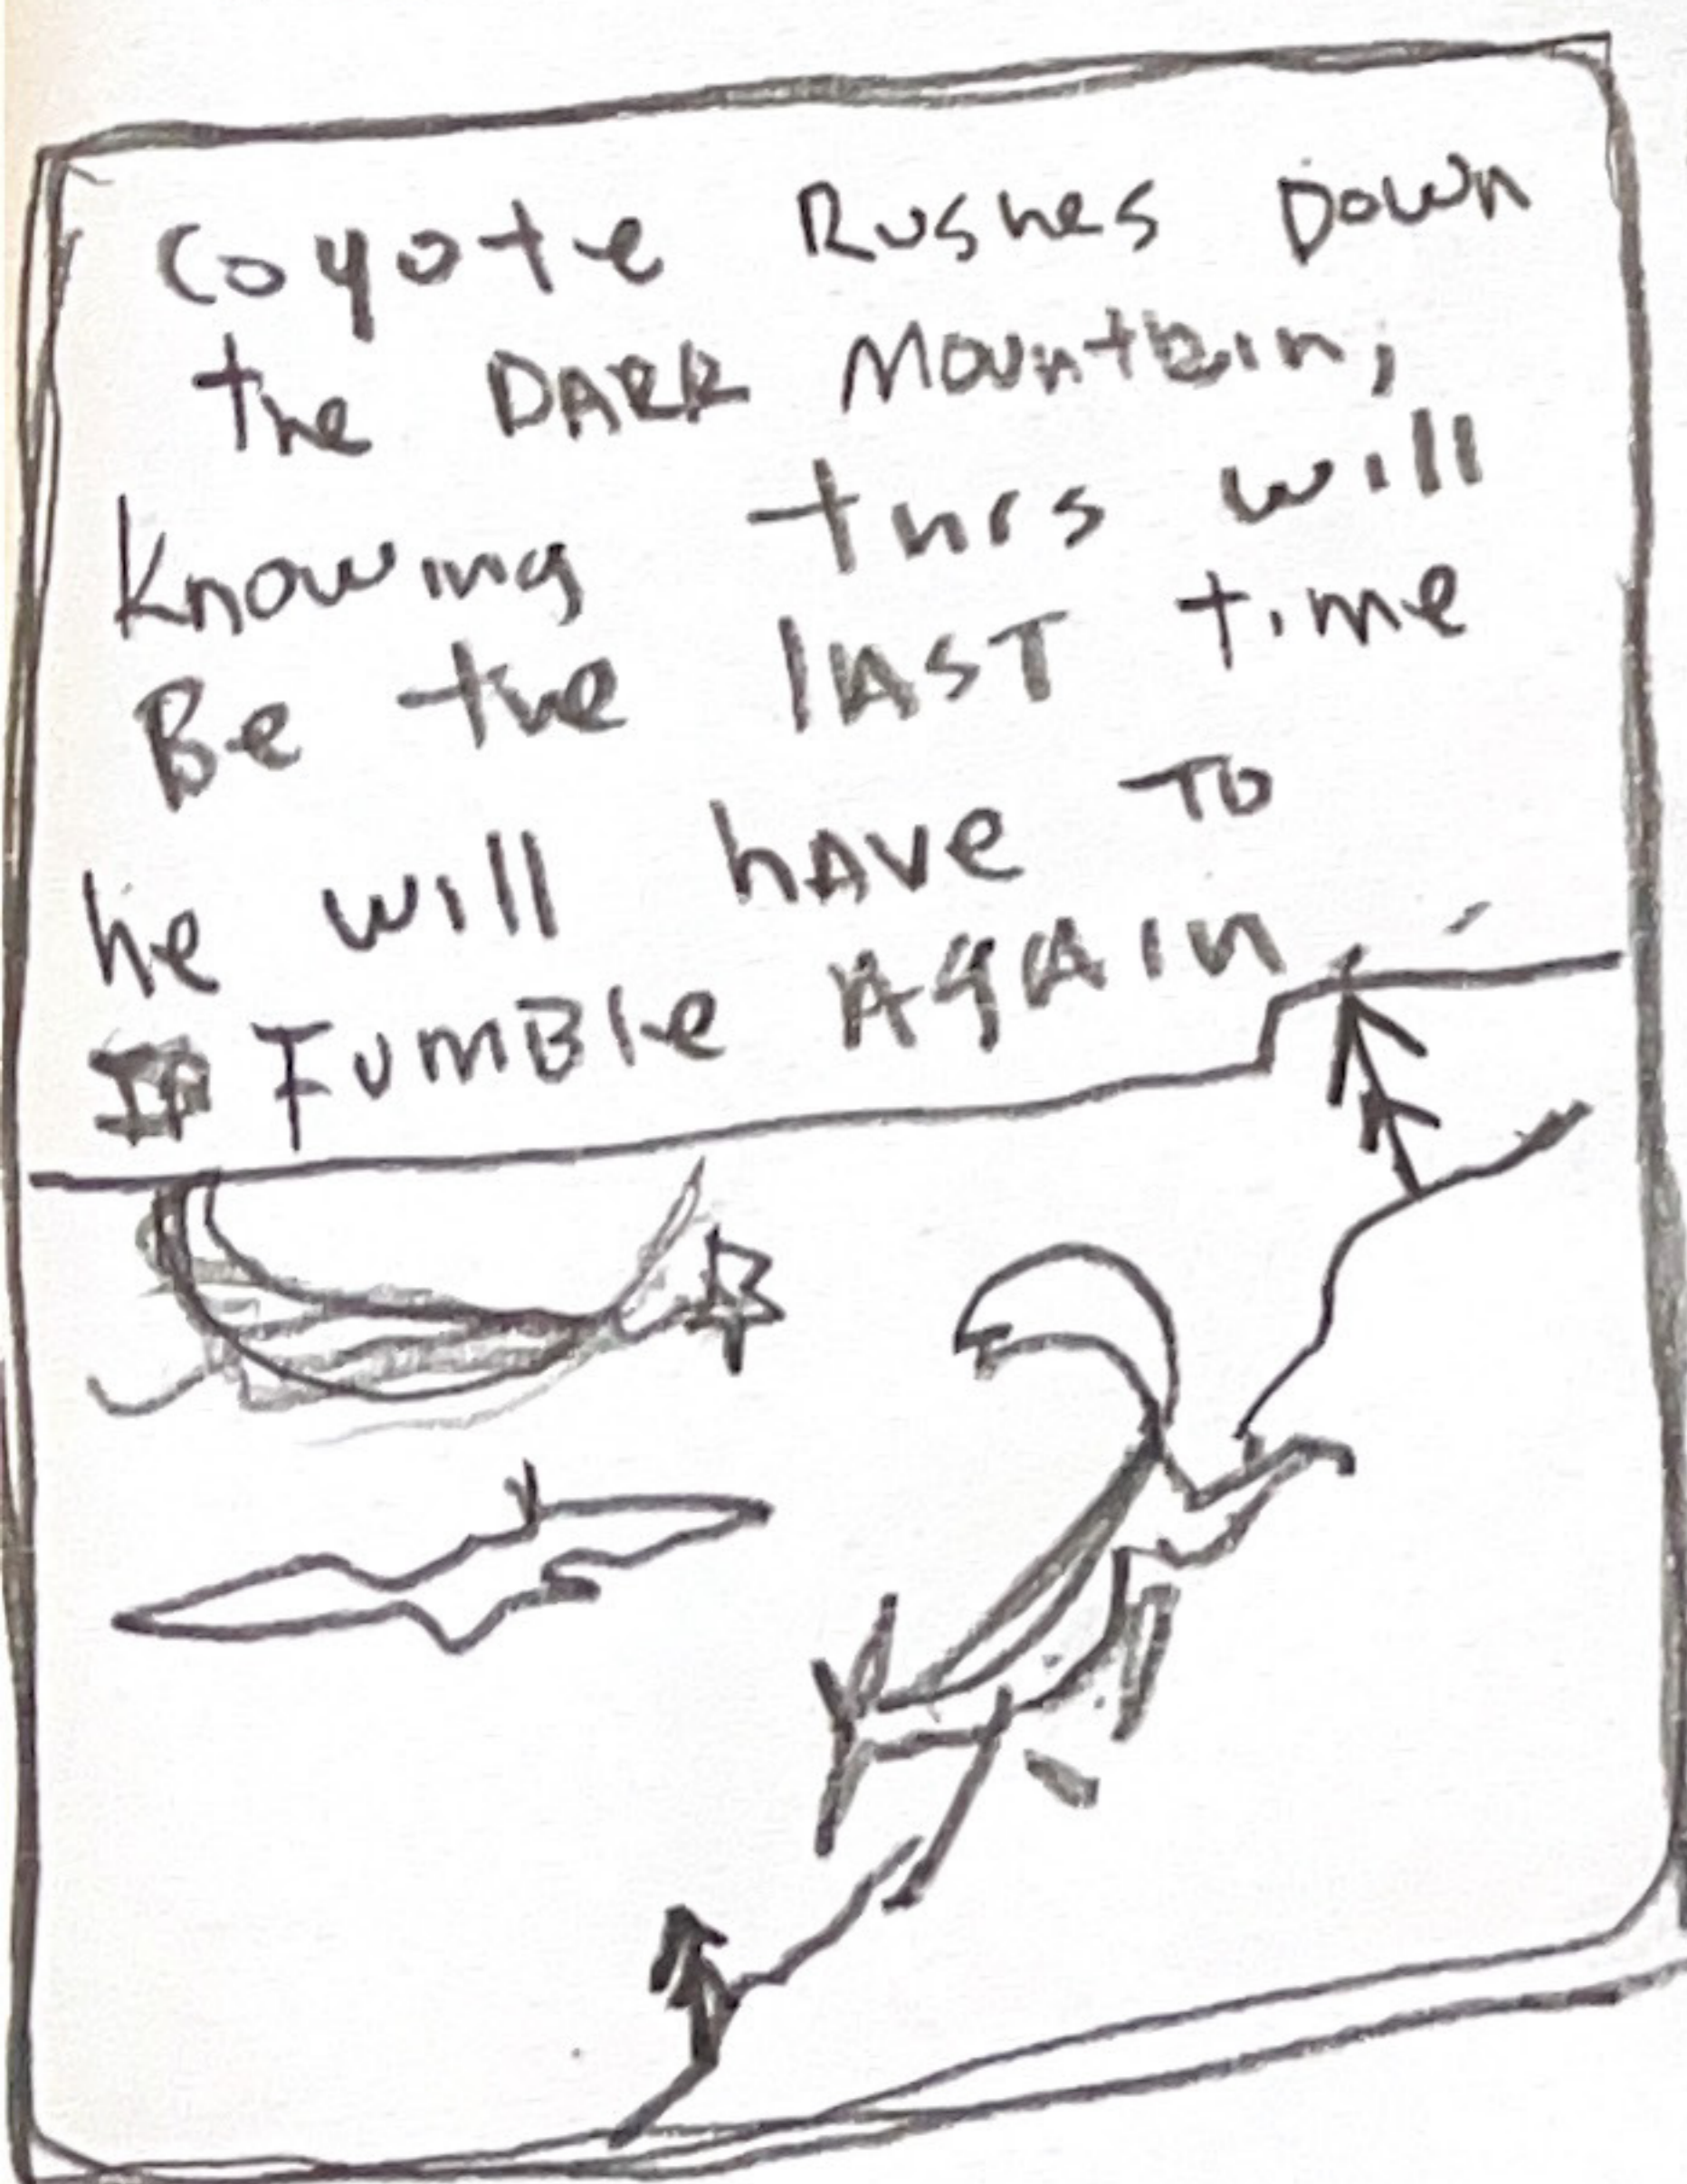 Coyote Rushes Down
the DARK Mountain,
Knowing this will
Be the lAST time
he will hAve To
FumBle AgAIn